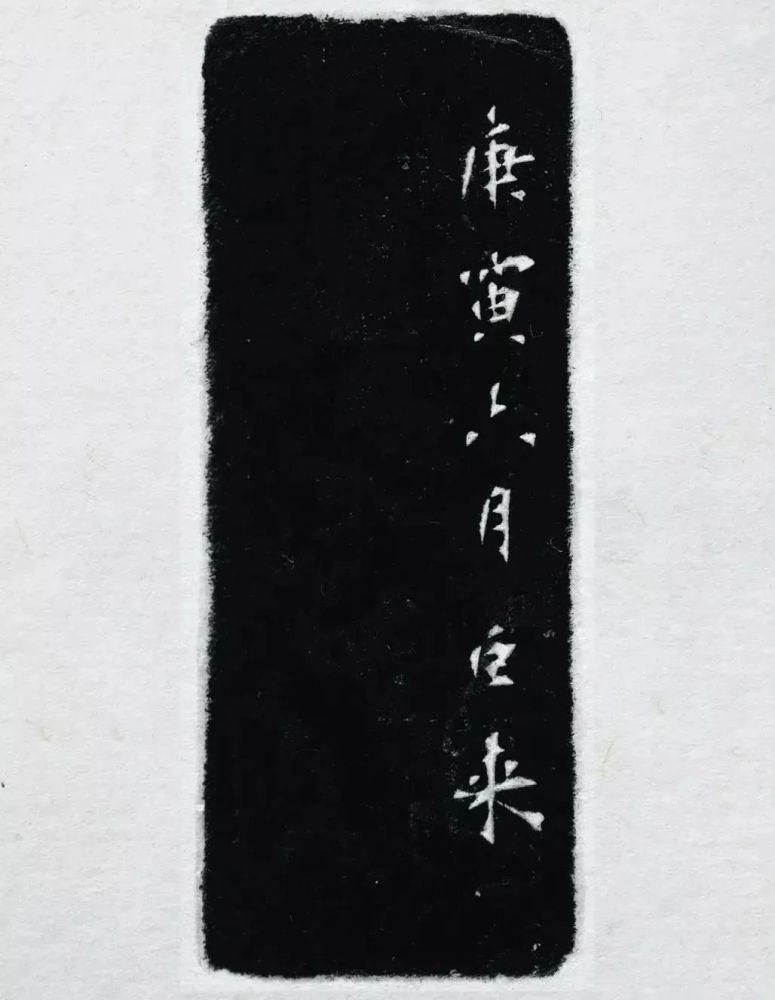 庚寅六月巨来